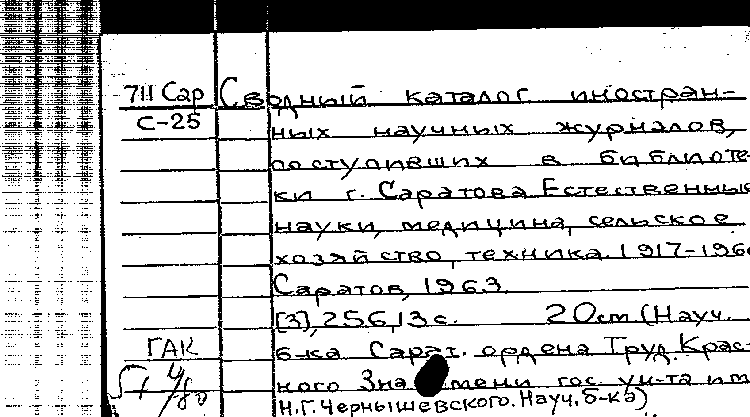 7III Сар Сводный каталог иностран-
С-25 ных научных журналов,
поступивших в библиоте
ки г. Саратова Естественные
науки, медицина, сельское
хозяйство, техника. 1917-196
Саратов, 1963.
[3], 256, 13 с. 20 см (Науч.
ГАК б-ка Сарат. ордена Труд. Крас-
ного Знамени гос ун-та им
Н.Г. Чернышевского. Науч. б-ка)